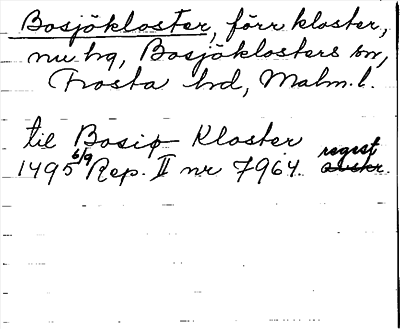 Bosjökloster, förr kloster,
nu hg, Bosjöklosters sn,
Frosta hd, Malm. l.
til Bosiø Kloster
1495 6/9 Rep. II nr 7964. regest avskr.